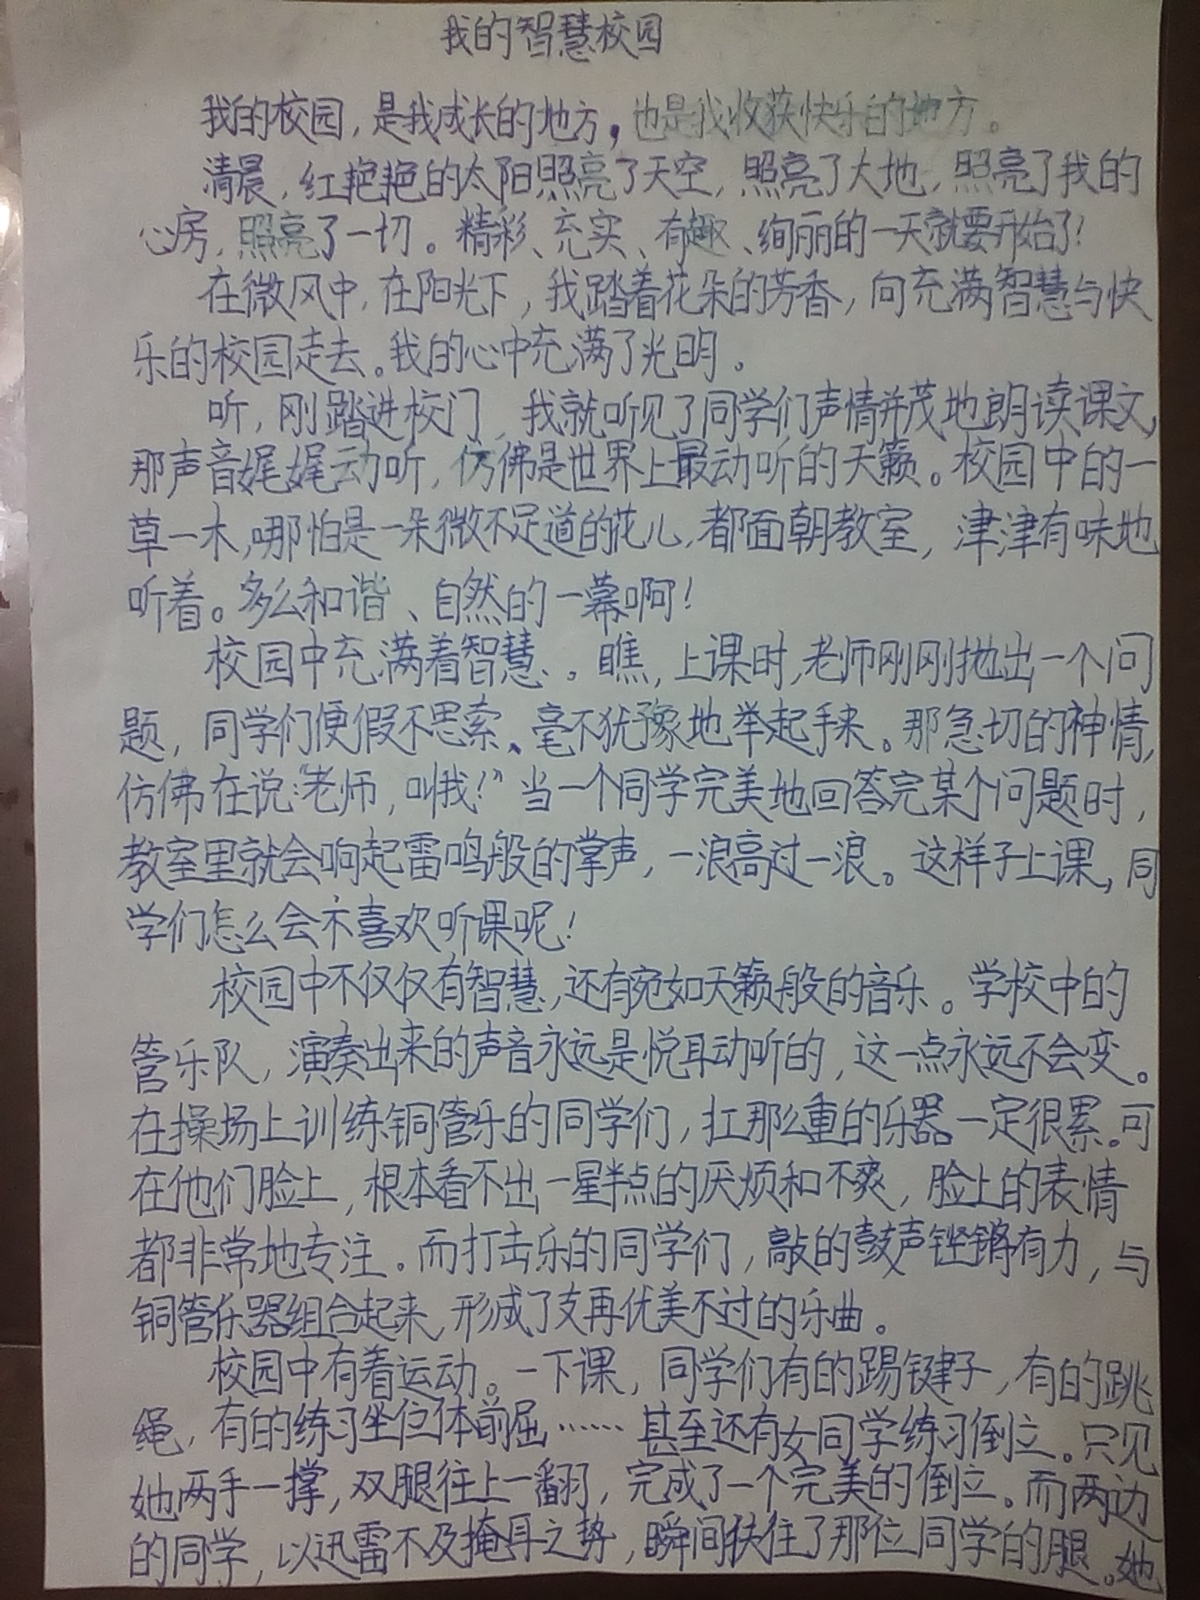 我的智慧校园
我的校园，是我成长的地方，也是我收获快乐的地方。
清晨，红艳艳的太阳照亮了天空，照亮了大地，照亮了我的
心房，照亮了一切。精彩、充实、有趣、绚丽的一天就要开始了！
在微风中，在阳光下，我踏着花朵的芳香，向充满智慧与快
乐的校园走去。我的心中充满了光明。
听，刚踏进校门，我就听见了同学们声情并茂地朗读课文，
那声音娓娓动听，仿佛是世界上最动听的天籁。校园中的一
草一木，哪怕是一朵微不足道的花儿，都面朝教室，津津有味地
听着。多么和谐、自然的一幕啊！
校园中充满着智慧。瞧，上课时，老师刚刚抛出一个问
题，同学们便假不思索、毫不犹豫地举起手来。那急切的神情，
仿佛在说：“老师，叫我！”当一个同学完美地回答完某个问题时，
教室里就会响起雷鸣般的掌声，一浪高过一浪。这样子上课，同
学们怎么会不喜欢听课呢！
校园中不仅仅有智慧，还有宛如天籁般的音乐。学校中的
管乐队，演奏出来的声音永远是悦耳动听的，这一点永远不会变。
在操场上训练铜管乐的同学们，扛那么重的乐器一定很累。可
在他们脸上，根本看不出一星半点的厌烦和不爽，脸上的表情
都非常地专注。而打击乐的同学们，敲的鼓声铿锵有力，与
铜管乐器组合起来，形成了支再优美不过的乐曲。
校园中有着运动。一下课，同学们有的踢键子，有的跳
绳，有的练习坐位体前屈……甚至还有女同学练习倒立。只见
她两手一撑，双腿往上一翻，完成了一个完美的倒立。而两边
的同学，以迅雷不及掩耳之势，瞬间扶住了那位同学的腿。她